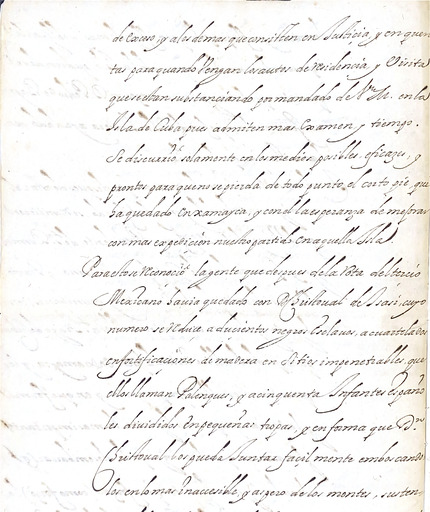 de exceso, y a los demas que consisten en Justicia, y en quen
tas para quando vengan los autos de residencia, y Visita
que se estan substanciando por mandado de V. M. en la
Isla de Cuba pues admiten mas examen y tiempo.
Se discurrió solamente en los medios posibles, eficazes, y
prontos para que no se pierda de todo punto el corto pie, que
ha quedado en xamayca, y con el la esperanza de mejorar
con mas expedicion nuestro partido en aquella Isla.
Para esto se reconoció la gente que despues de la rota del tercio
Mexicano havia quedado con Christoual de Isasi, cuyo
numero se reduxe a ducientos negros esclavos, aquartelados
en fortificaciones de madera en sitios impenetrables, que
ellos llaman Palenques, y a cinquenta Infantes españo
les divididos en pequeñas tropas, y en forma que D.n
Christoual los pueda juntar facilmente emboscando
los en lo mas inaccesible, y aspero de los montes, susten-